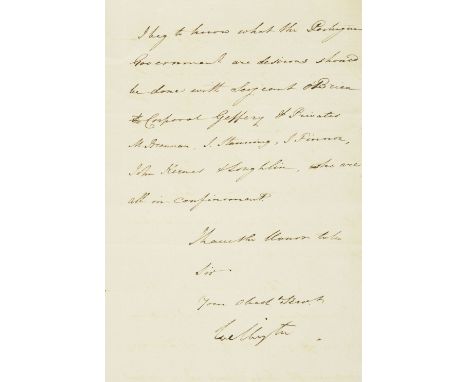 I beg to know what the Portugue
Government are desirous should
be done with Sergeant OBrien
Corporal Geffery & Privates
M. Brennan, J. Manning, J. Finna,
John Kernes & Loughlin, who are
all in confinement.
I have the Honor to be
Sir
Your obed. Serv.t
Wellington